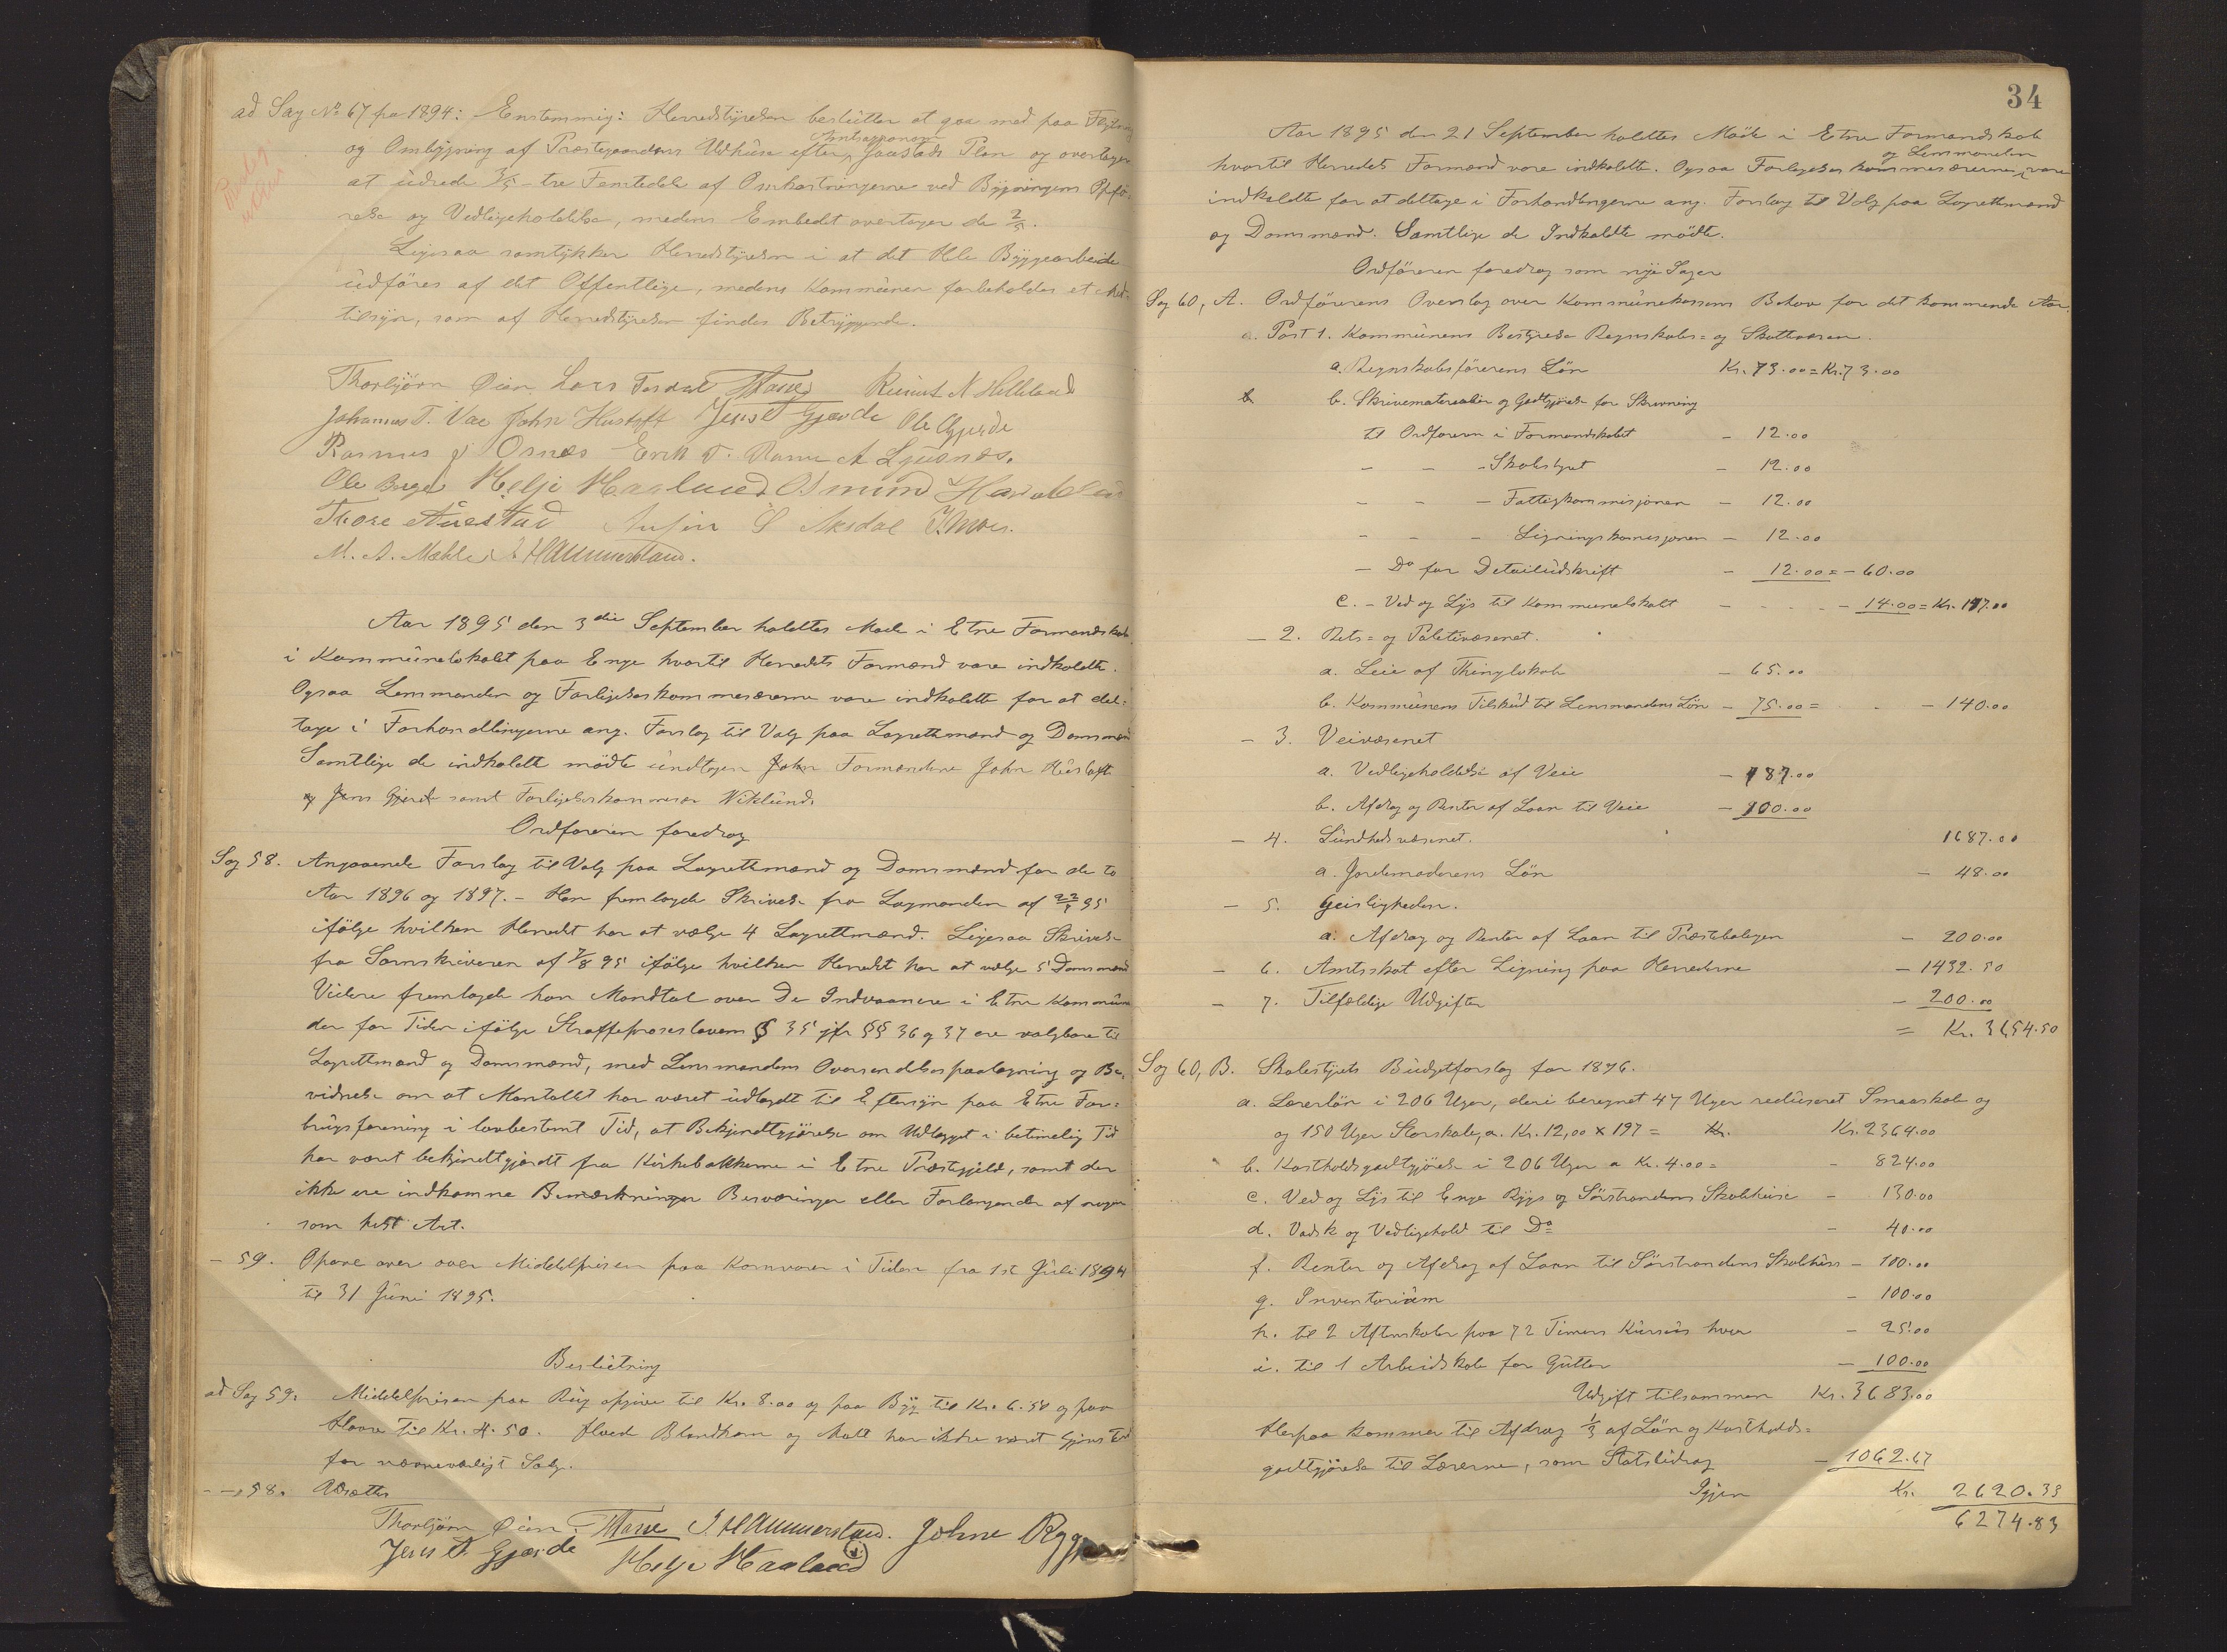 ad Sag No 67 fra 1894: Enstemmig: Herredstyrelsen beslutter at gaa med paa Flytning
og Ombygning af Præstegaardens Udhuse efter Amtsagronom Jaastads Plan og overtager
at udrede 3/5 - tre Femtedele af Omkostningerne ved Bygningens Opfø-
relse og Vedligeholdelse, medens Embedet overtager de 2/5.
Ligesaa samtykker Herredstyrelsen i at det Hele Byggearbeide
udføres af det Offentlige, medens Kommunen forbeholdes et Med-
tilsyn, som af Herredstyrelsen findes Betryggende.
Thorbjørn Øien Lars Tesdal Knut N Helleland
Johannes T. Vae John Hustoft Jens T Gjerde Ole Gjerde
Rasmus J Osnes Erik T. Ramne A Ljusnes.
Ole Helje Haaland Osmund
Thore Auestad S Aksdal
M. A. Mæhle. J Hammerstad.
Aar 1895 den 3die September holdtes Møde i Etne Formandskab
i Kommunelokalet paa Enge hvortil Herredets Formænd vare indkaldte.
Ogsaa Lensmanden og Forligelseskommesærerne vare indkaldte for at del-
tage i Forhandlingerne ang. Forslag til Valg paa Lagrettemænd og Domsmænd
Samtlige de indkaldte mødte undtagen John Formændene John Hustoft
og Jens Gjerde samt Forligelseskommesær Viklund.
Ordføreren foredrog
Sag 58. Angaaende Forslag til Valg paa Lagrettemænd og Domsmænd for de to
Aar 1896 og 1897. - Han fremlagde Skrivelse fra Lagmanden af 22/ 95
ifølge hvilken Herredet har at vælge 4 Lagrettmænd. Ligesaa Skrivelse
fra Sorenskriveren af 7/8 95 ifølge hvilken Herredet har at vælge 5 Domsmænd
Videre fremlagde han Mandtal over De Indvaanere i Etne Kommune
der for Tiden ifølge Straffeproseslovens § 35 jfr §§ 36 og 37 ere valgbare til
Lagrettmænd og Domsmænd, med Lensmandens Oversendelsespaategning og Be-
vidnelse om at Mantallet har været udlagdt til Eftersyn paa Etne For-
brugsforening i lovbestemt Tid, at Bekjendtgjørelse om Udlægget i betimelig Tid
har været bekjendtgjordt fra Kirkebakkerne i Etne Præstegjeld, samt der
ikke ere indkomne Bemærkninger Besværinger eller Forlangender af nogen
som helst Art.
- 59. Opave over over Middelprisen paa Kornvarer i Tiden fra 1st Juli 1894
til 31 Juni 1895.
Beslutning
ad Sag 59. Middelprisen paa Rug opgives til Kr. 8.00 og paa Byg til Kr. 6.50 og paa
Havre til Kr. 4.50. Hvede Blandkorn og Malt har ikke været Gjenstand
for nævneværdigt Salg.
- - 58. Udsættes
Thorbjørn Øien. J. Hammerstad. Johne Rygg
Jens T. Gjerde Helje Haaland
34
Aar 1895 den 21 September holdtes Møde i Etne Formandskab
hvortil Herredets Formænd vare indkaldte. Ogsaa Forligelseskommesærerne og Lensmanden vare
indkaldte for at deltage i Forhandlingerne ang. Forslag til Valg paa Lagrettmænd
og Domsmænd. Samtlige de Indkaldte mødte.
Ordføreren foredrog som nye Sager
Sag 60, A. Ordførerens Overslag over Kommunekassens Behov for det kommende Aar.
a. Post 1. Kommunens Bestyrelse Regnskabs= og Skattevæsen.
a. Regnskabsførerens Løn Kr. 73.00 = Kr. 73.00
b. Skrivematerialier og Godtgjørelse for Skrivning
til Ordføreren i Formandskabet - 12.00
- - - Skolestyret - 12.00
- - - Fattigkommisjonen - 12.00
- - - Ligningskomisjonen - 12.00
- Do for Detailudskrift - 12.00 = - 60.00
c. - Ved og Lys til Kommunelokalet - - - - 14.00 = Kr. 147.00
- 2. Rets= og Politivæsenet.
a. Leie af Thinglokale - 65.00
b. Kommunens Tilskud til Lensmandens Løn - 75.00 = - - 140.00
- 3. Veivæsenet
a. Vedligeholdelse af Veie - 787.00
b. Afdrag og Renter af Laan til Veie - 900.00
- 4. Sundhedsvæsenet. 1687.00
a. Jordemoderens Løn - 48.00
- 5. Geistligheden.
a. Afdrag og Renter af Laan til Præsteboligen - 200.00
- 6. Amtsskat efter Ligning paa Herrederne - 1432.50
- 7. Tilfældige Udgifter - 200.00
= Kr. 3654.50
Sag 60, B. Skolestyrets Budgetforslag for 1896.
a. Lærerløn i 206 Uger, deri beregnet 47 Uger reduseret Smaaskole og
og 150 Uger Storskole, a. Kr. 12,00 x 197 = Kr. Kr. 2364.00
b. Kostholdsgodtgjørelse i 206 Uger a Kr. 4.00 = - 824.00
c. Ved og Lys til Enge Rygs og Sørstrandens Skolehuse - 130.00
d. Vadsk og Vedligehold til Do - 40.00
f. Renter og Afdrag af Laan til Sørstrandens Skolehus - 100.00
g. Inventarium - 100.00
h. til 2 Aftenskoler paa 72 Timers Kursus hver - 25.00
i. til 1 Arbeidskole for Gutter - 100.00
Udgift tilsammen Kr. 3683.00
Herpaa kommer til Afdrag 1/3 af Løn og Kostholds=
godtgjørelse til Lærerne, som Statsbidrag - 1062.67
Igjen Kr. 2620.33
6274.83